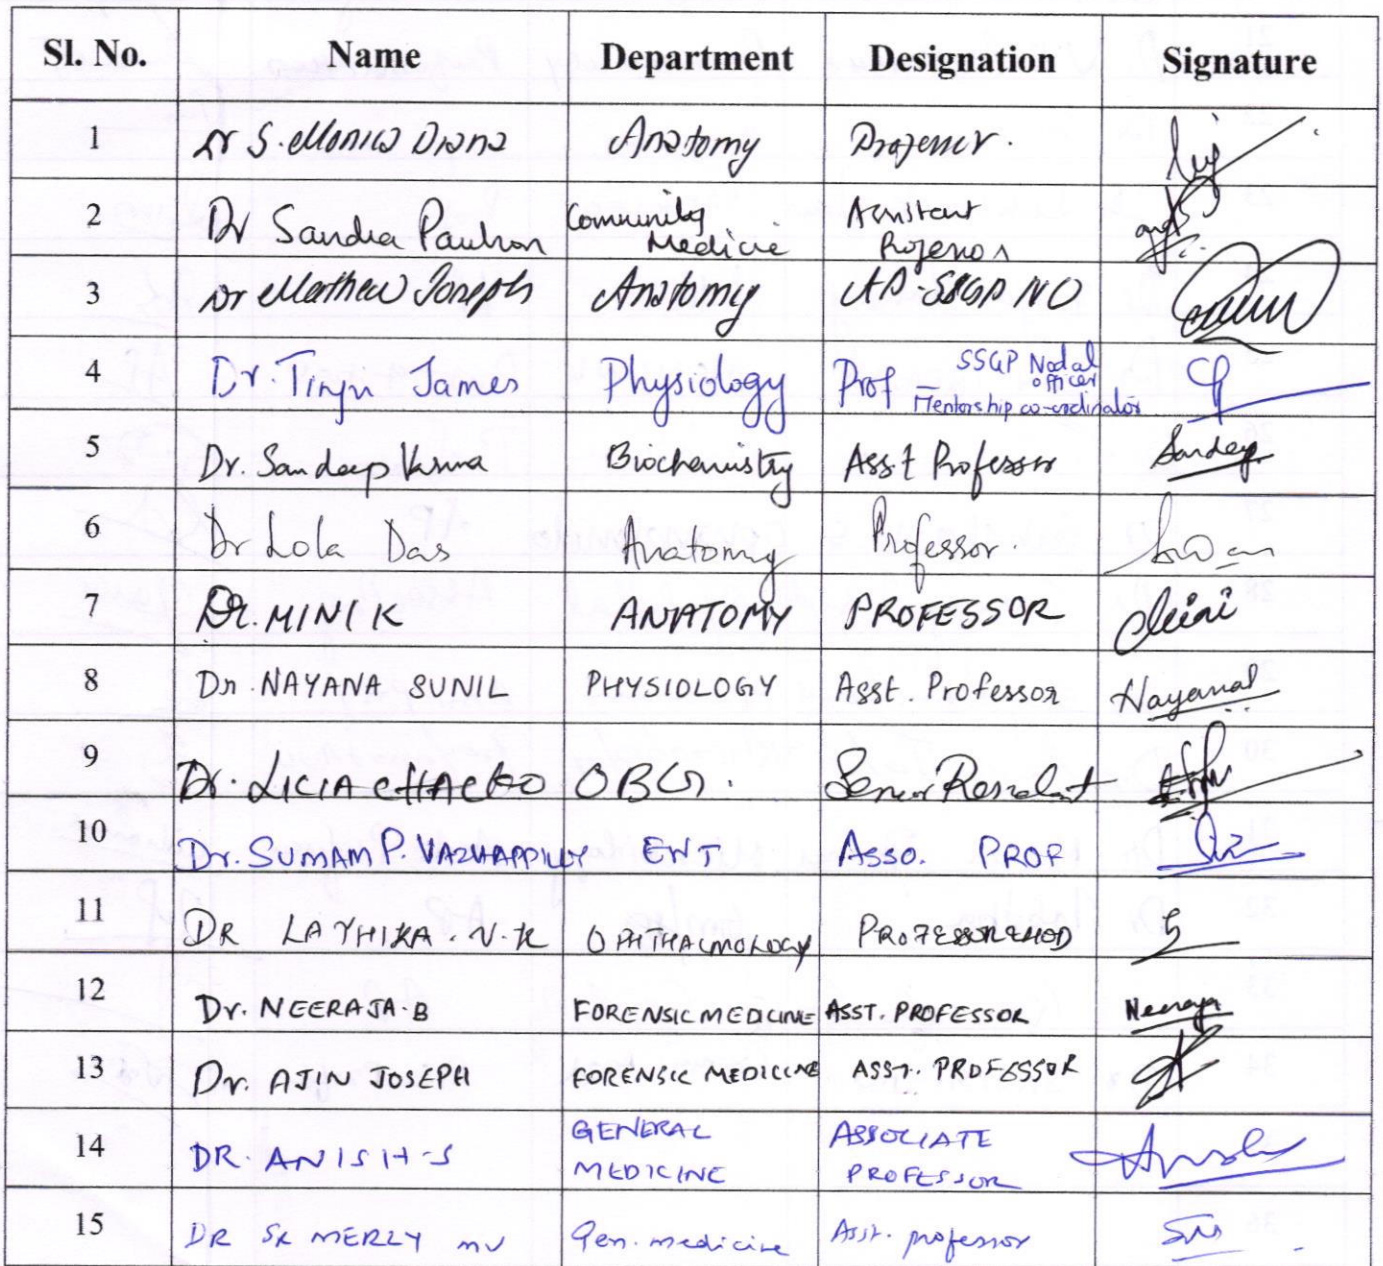 Sl. No. Name Department Designation Signature
1 Dr S. Monica Diana Anatomy Professor.
2 Dr Sandra Paulson Community Medicine Assistant Professor
3 Dr Mathew Joseph Anatomy AP-SSGP NO
4 Dr. Tinju James Physiology Prof – SSGP Nodal officer Mentorship co-ordinator
5 Dr. Sandeep Varma Biochemistry Asst Professor Sandeep
6 Dr Lola Das Anatomy Professor.
7 Dr. MINI K ANATOMY PROFESSOR Mini
8 Dr. NAYANA SUNIL PHYSIOLOGY Asst. Professor
9 Dr. LICIA CHACKO OBG. Senior Resident
10 Dr. SUMAM P. VAZHAPPILLY ENT ASSO. PROF
11 DR LATHIKA. V. K OPHTHALMOLOGY PROFESSOR & HOD
12 Dr. NEERAJA. B FORENSIC MEDICINE ASST. PROFESSOR Neeraja
13 Dr. AJIN JOSEPH FORENSIC MEDICINE ASST. PROFESSOR
14 DR. ANISH S GENERAL MEDICINE ASSOCIATE PROFESSOR
15 DR SR MERLY MV Gen. medicine Asst. professor